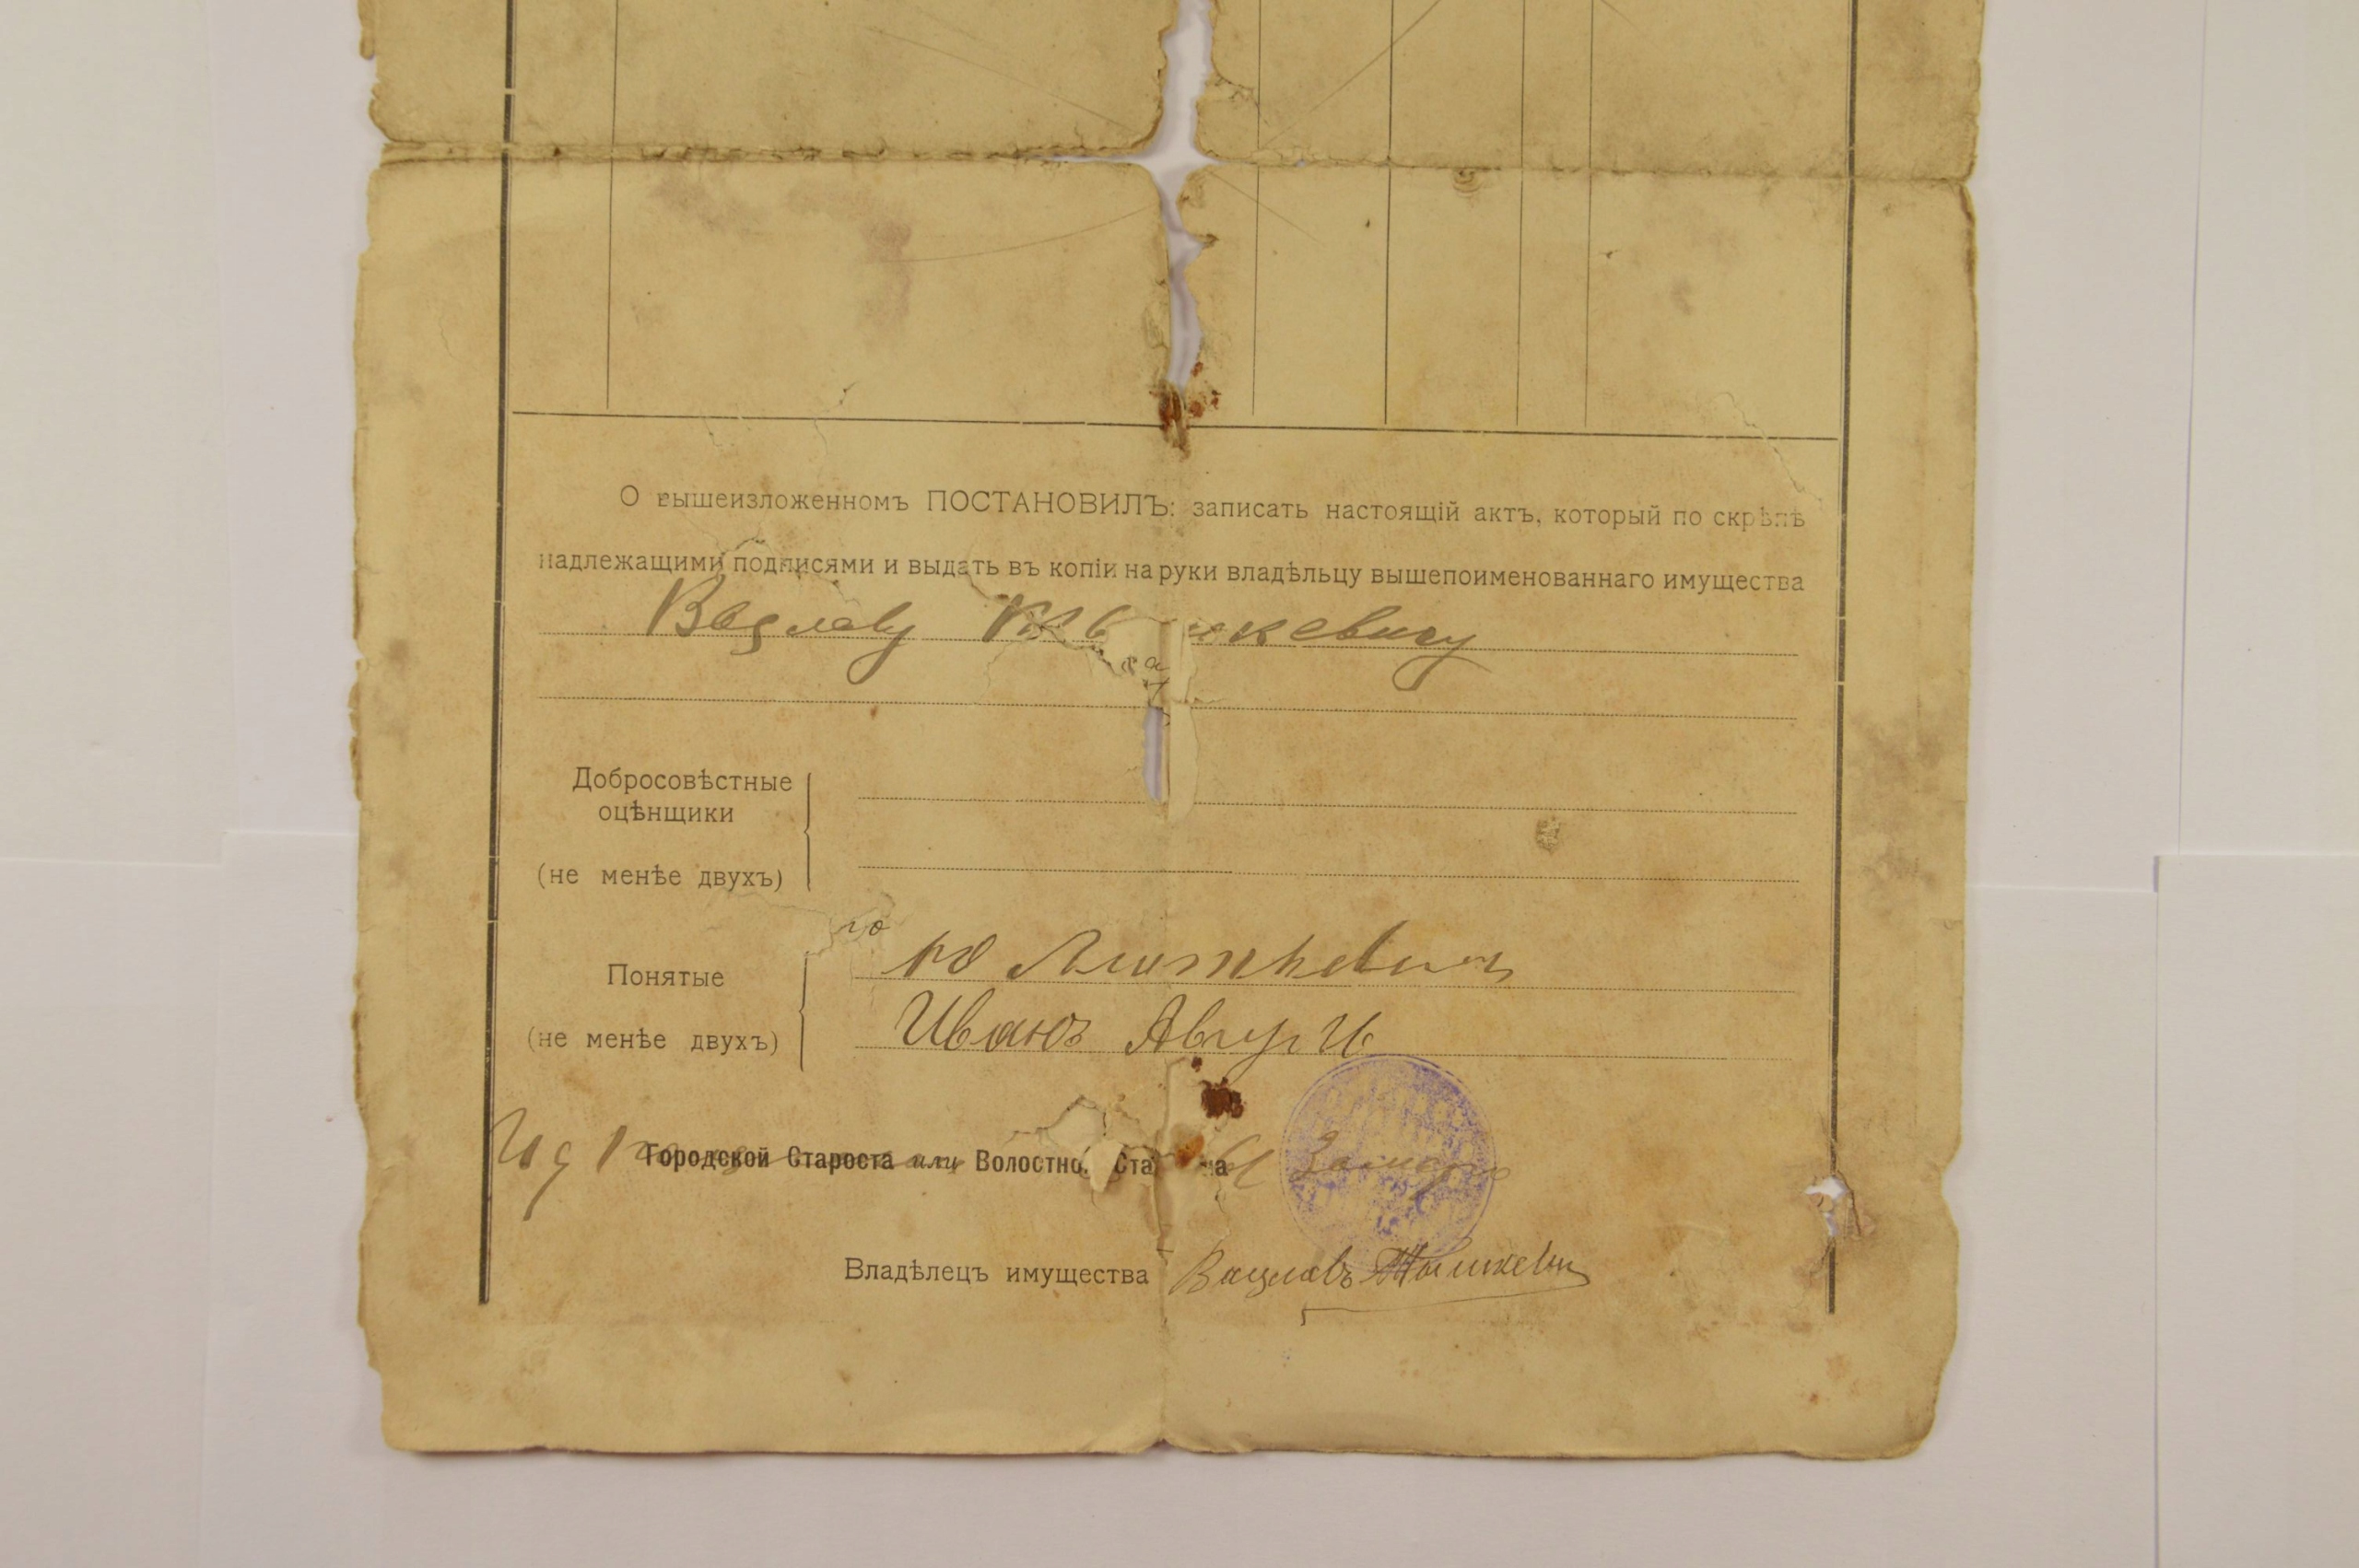 О вышеизложенномъ ПОСТАНОВИЛЪ: записать настоящій актъ, который по скрѣпѣ
надлежащими подписями и выдать въ копіи на руки владѣльцу вышепоименованнаго имущества
Вацлаву
Добросовѣстные
оцѣнщики
(не менѣе двухъ)
Понятые
(не менѣе двухъ)
Иванъ
Городской Староста или Волостно Ста а
Владѣлецъ имущества Вацлавъ